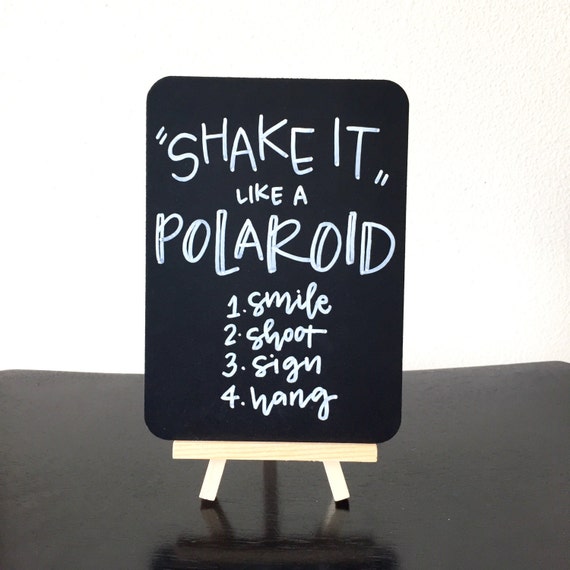 "SHAKE IT"
LIKE A
POLAROID
1. smile
2. shoot
3. sign
4. hang